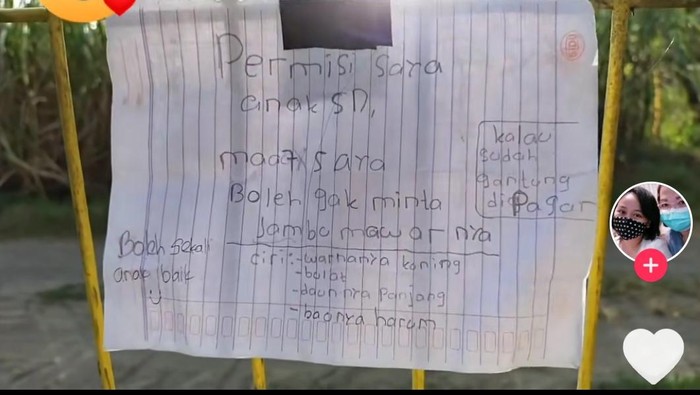 Permisi saya
anak SD,
maaf saya
Boleh gak minta
Jambu mawar nya
Ciri:-warnanya kuning
-bulat
-daunnya Panjang
-baunya harum
kalau
sudah
gantung
diPagar
Boleh sekali
anak baik